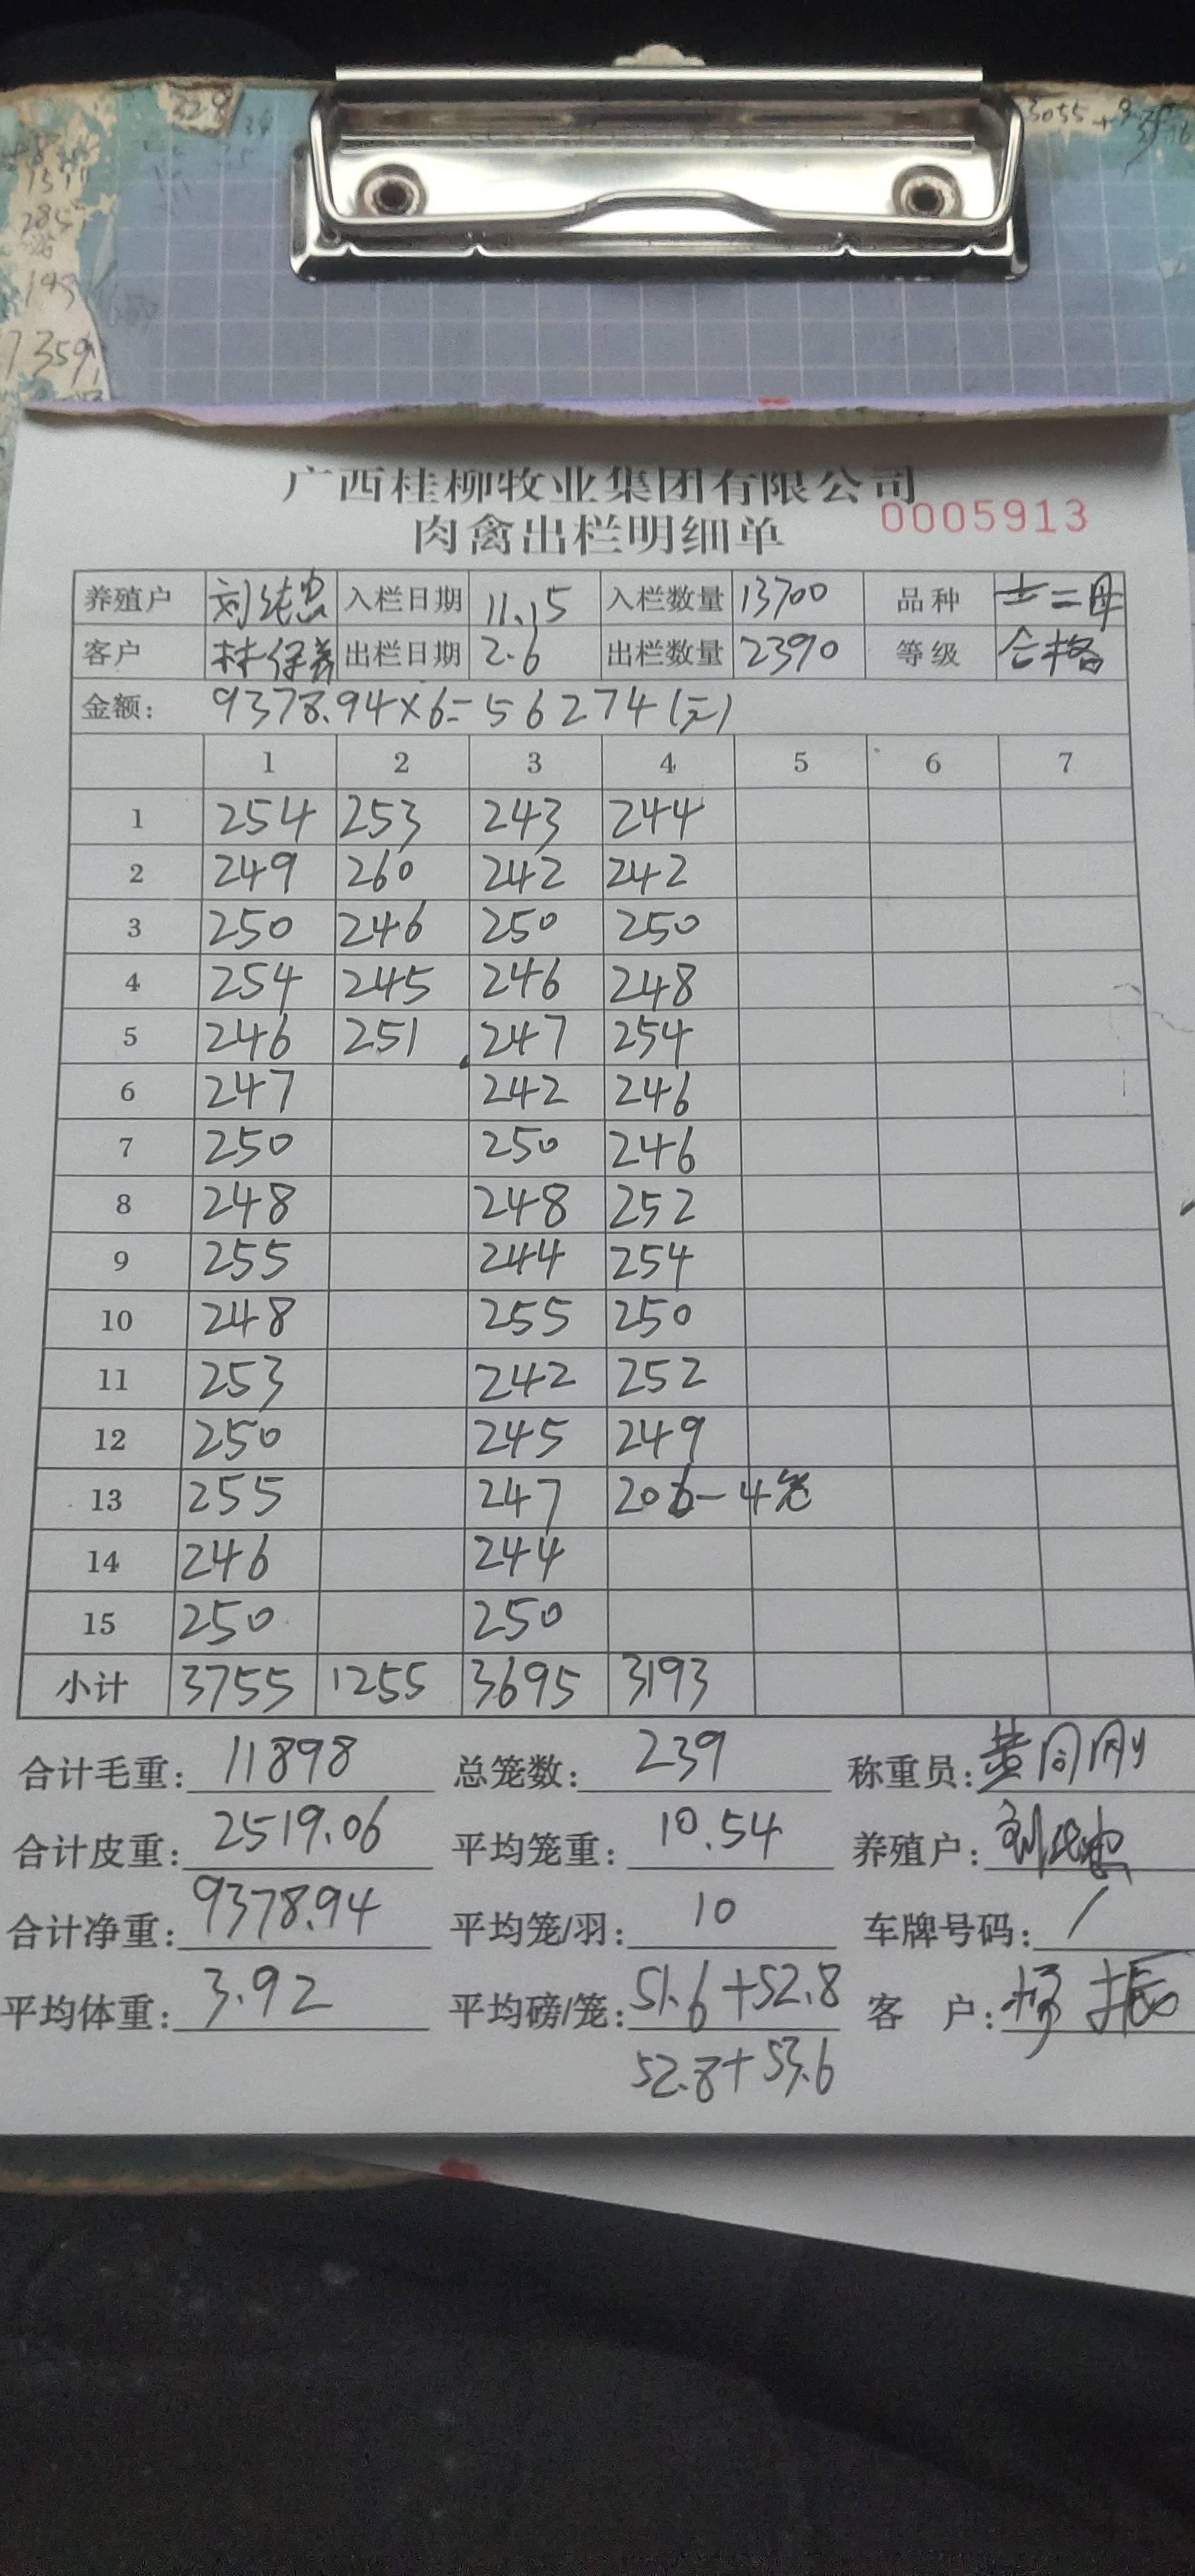 3055+9
7359
广西桂柳牧业集团有限公司
肉禽出栏明细单 0005913
养殖户 刘纯忠 入栏日期 11.15 入栏数量 13700 品种 土二母
客户 林保养 出栏日期 2.6 出栏数量 2390 等级 合格
金额: 9378.94×6=56274(元)
1 2 3 4 5 6 7
1 254 253 243 244
2 249 260 242 242
3 250 246 250 250
4 254 245 246 248
5 246 251 247 254
6 247 242 246
7 250 250 246
8 248 248 252
9 255 244 254
10 248 255 250
11 253 242 252
12 250 245 249
13 255 247 206-4笼
14 246 244
15 250 250
小计 3755 1255 3695 3193
合计毛重: 11898 总笼数: 239 称重员: 黄同刚
合计皮重: 2519.06 平均笼重: 10.54 养殖户: 刘纯忠
合计净重: 9378.94 平均笼/羽: 10 车牌号码: /
平均体重: 3.92 平均磅/笼: 51.6+52.8 客 户: 杨振
52.8+53.6